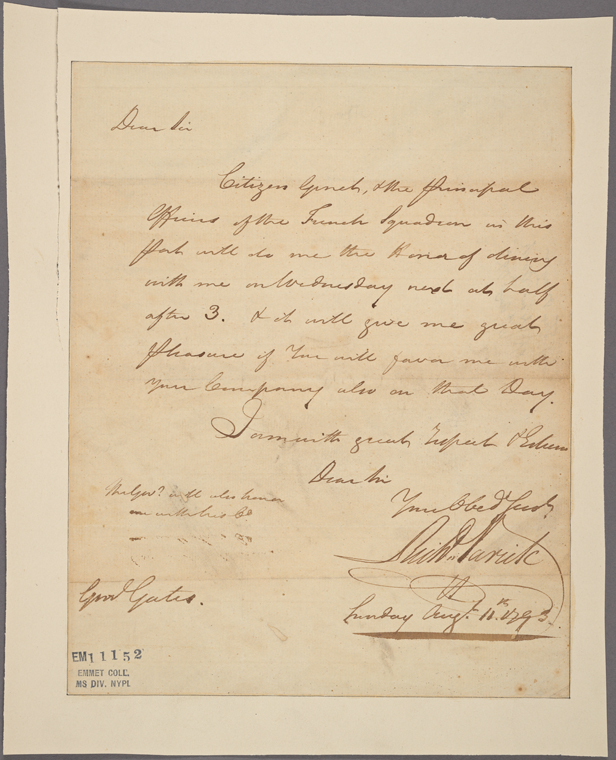 Dear Sir
Citizen Genet, & the Principal
Officers of the French Squadron in this
Port will do me the Honor of dining
with me on Wednesday next at half
after 3. & it will give me great
pleasure if You will favor me with
Your Company also on that Day.
I am with great Respect & Esteem
Dear Sir
Your Obedt Servt
Richd Varick
Sunday Augt 11th 1793.
The Govr will also honor
me with his Co
Genl Gates.
EM11152
EMMET COLL.
MS DIV. NYPL